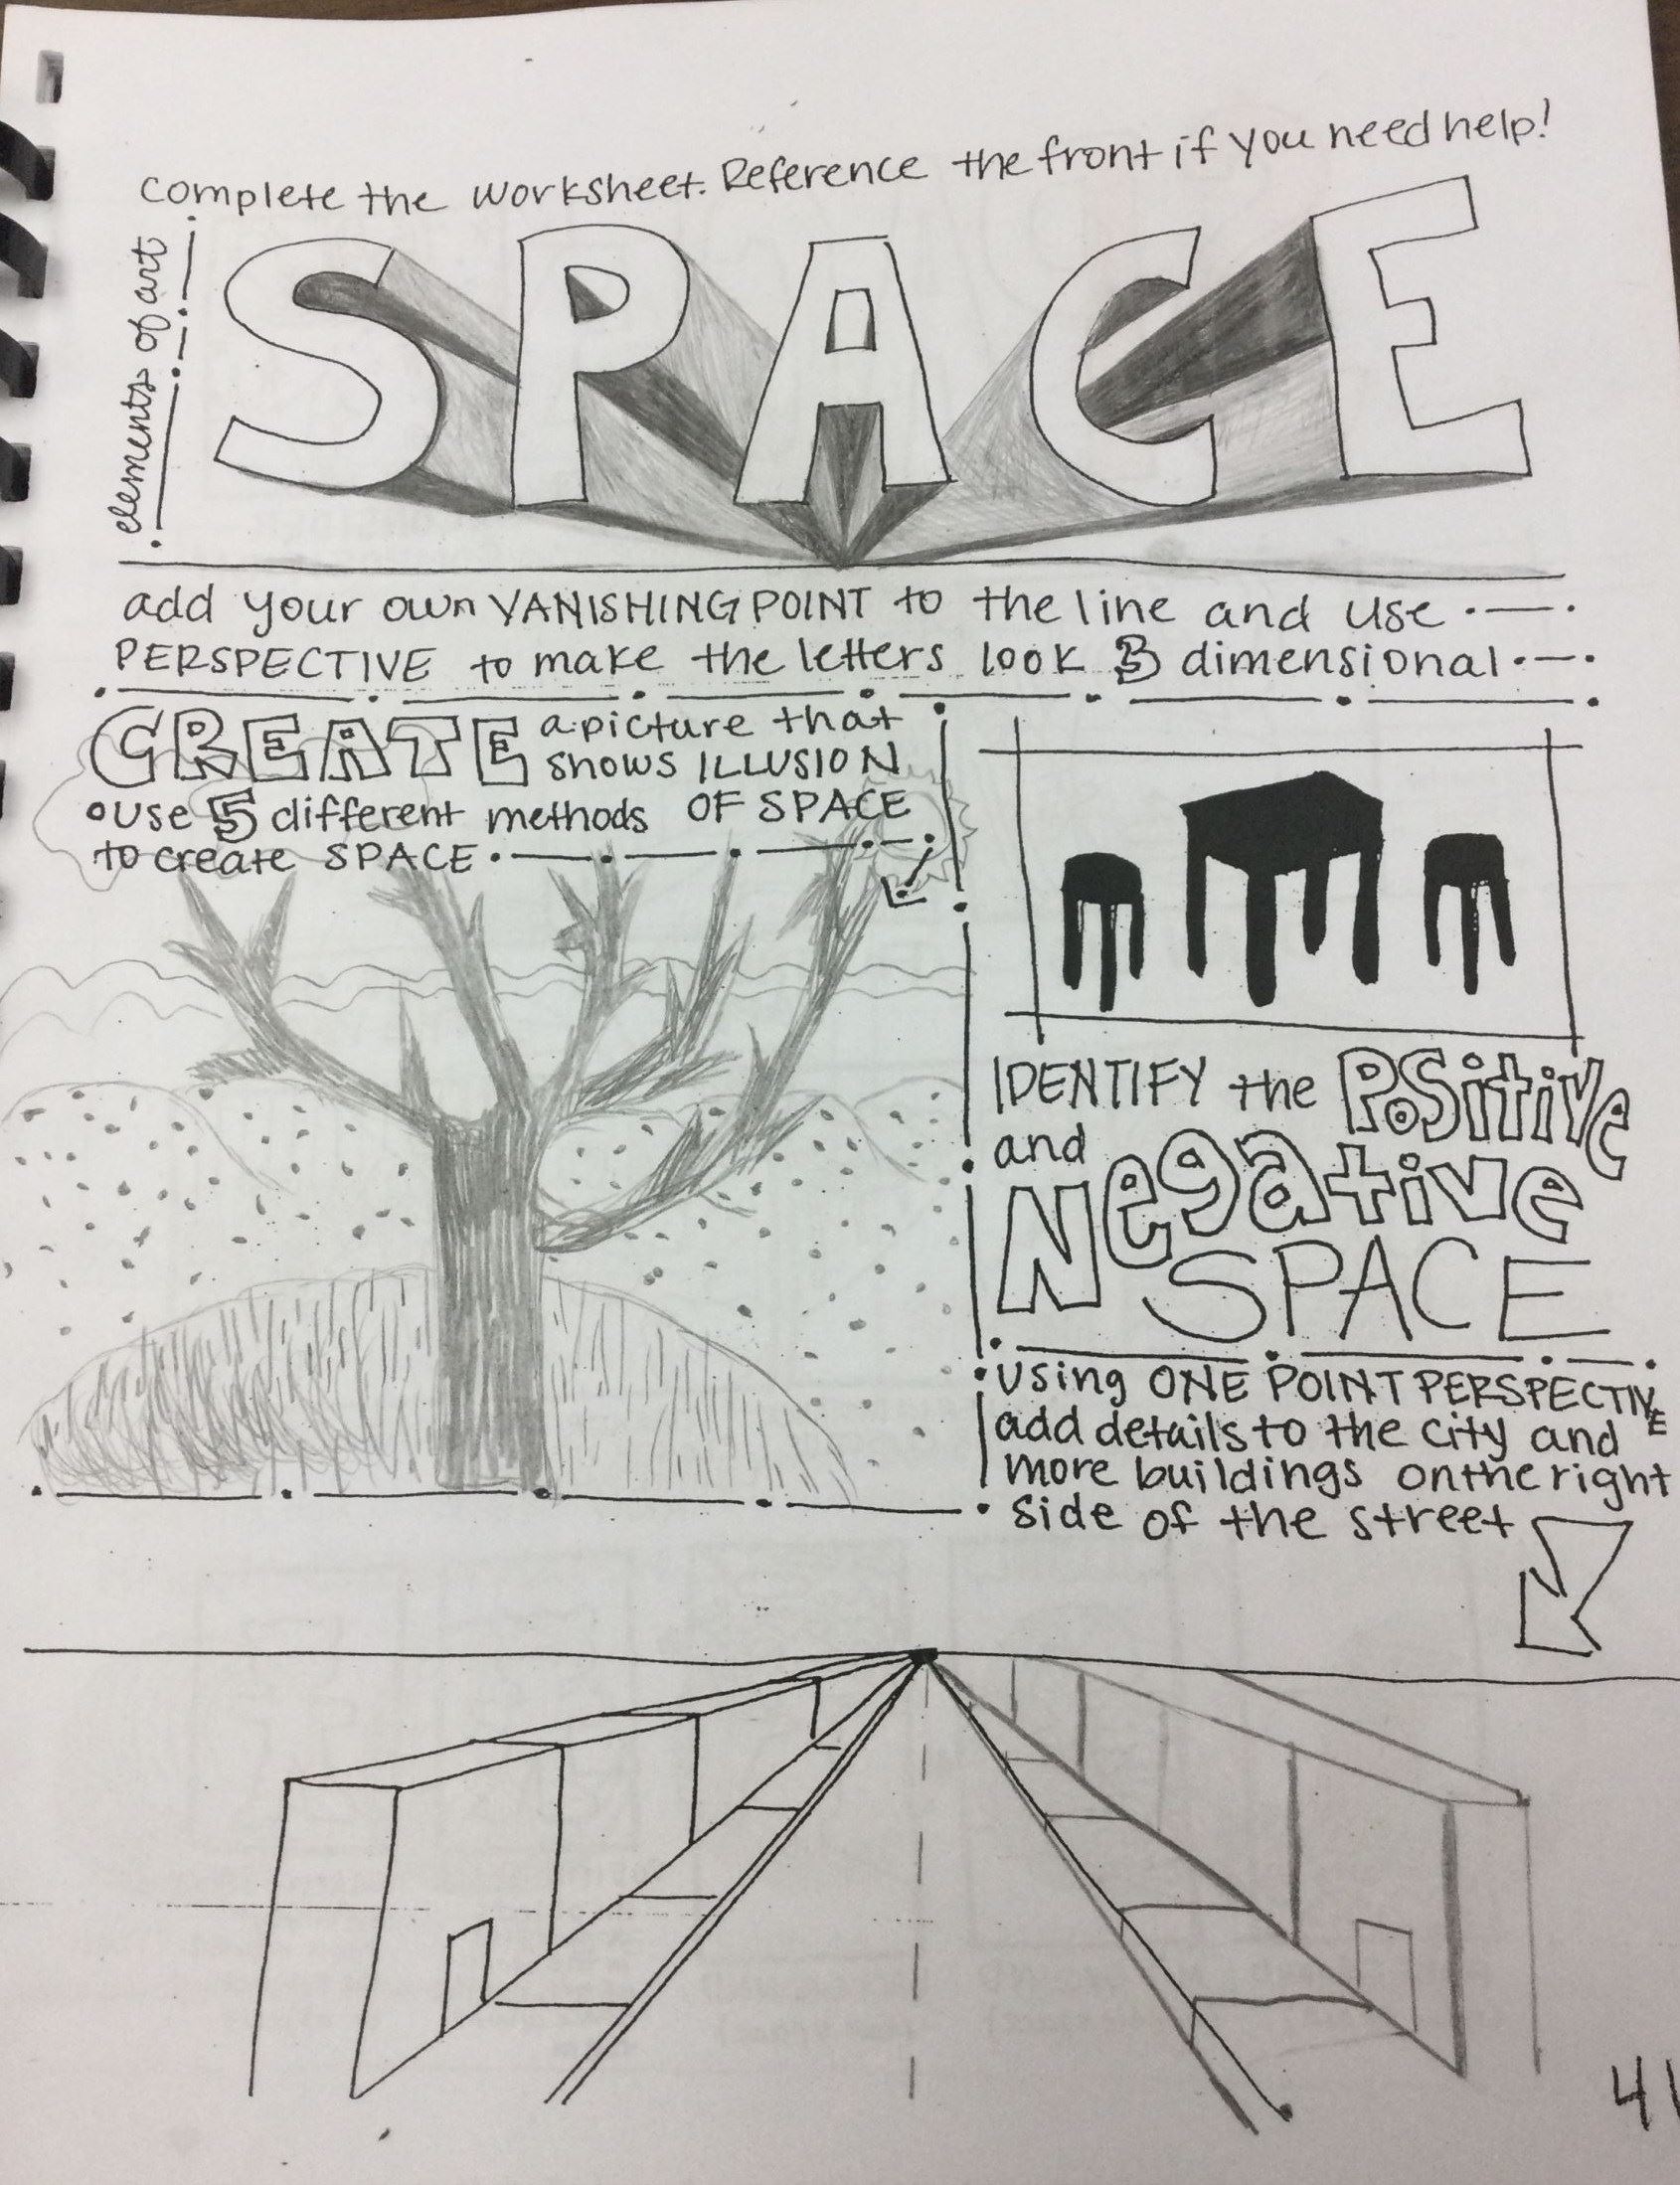 complete the worksheet. Reference the front if you need help!
elements of art
SPACE
add your own VANISHING POINT to the line and use
PERSPECTIVE to make the letters look 3 dimensional
CREATE a picture that
shows ILLUSION
OF SPACE
• use 5 different methods
to create SPACE
IDENTIFY the POSitive
and
Negative
SPACE
• using ONE POINT PERSPECTIVE
add details to the city and
more buildings on the right
side of the street
41